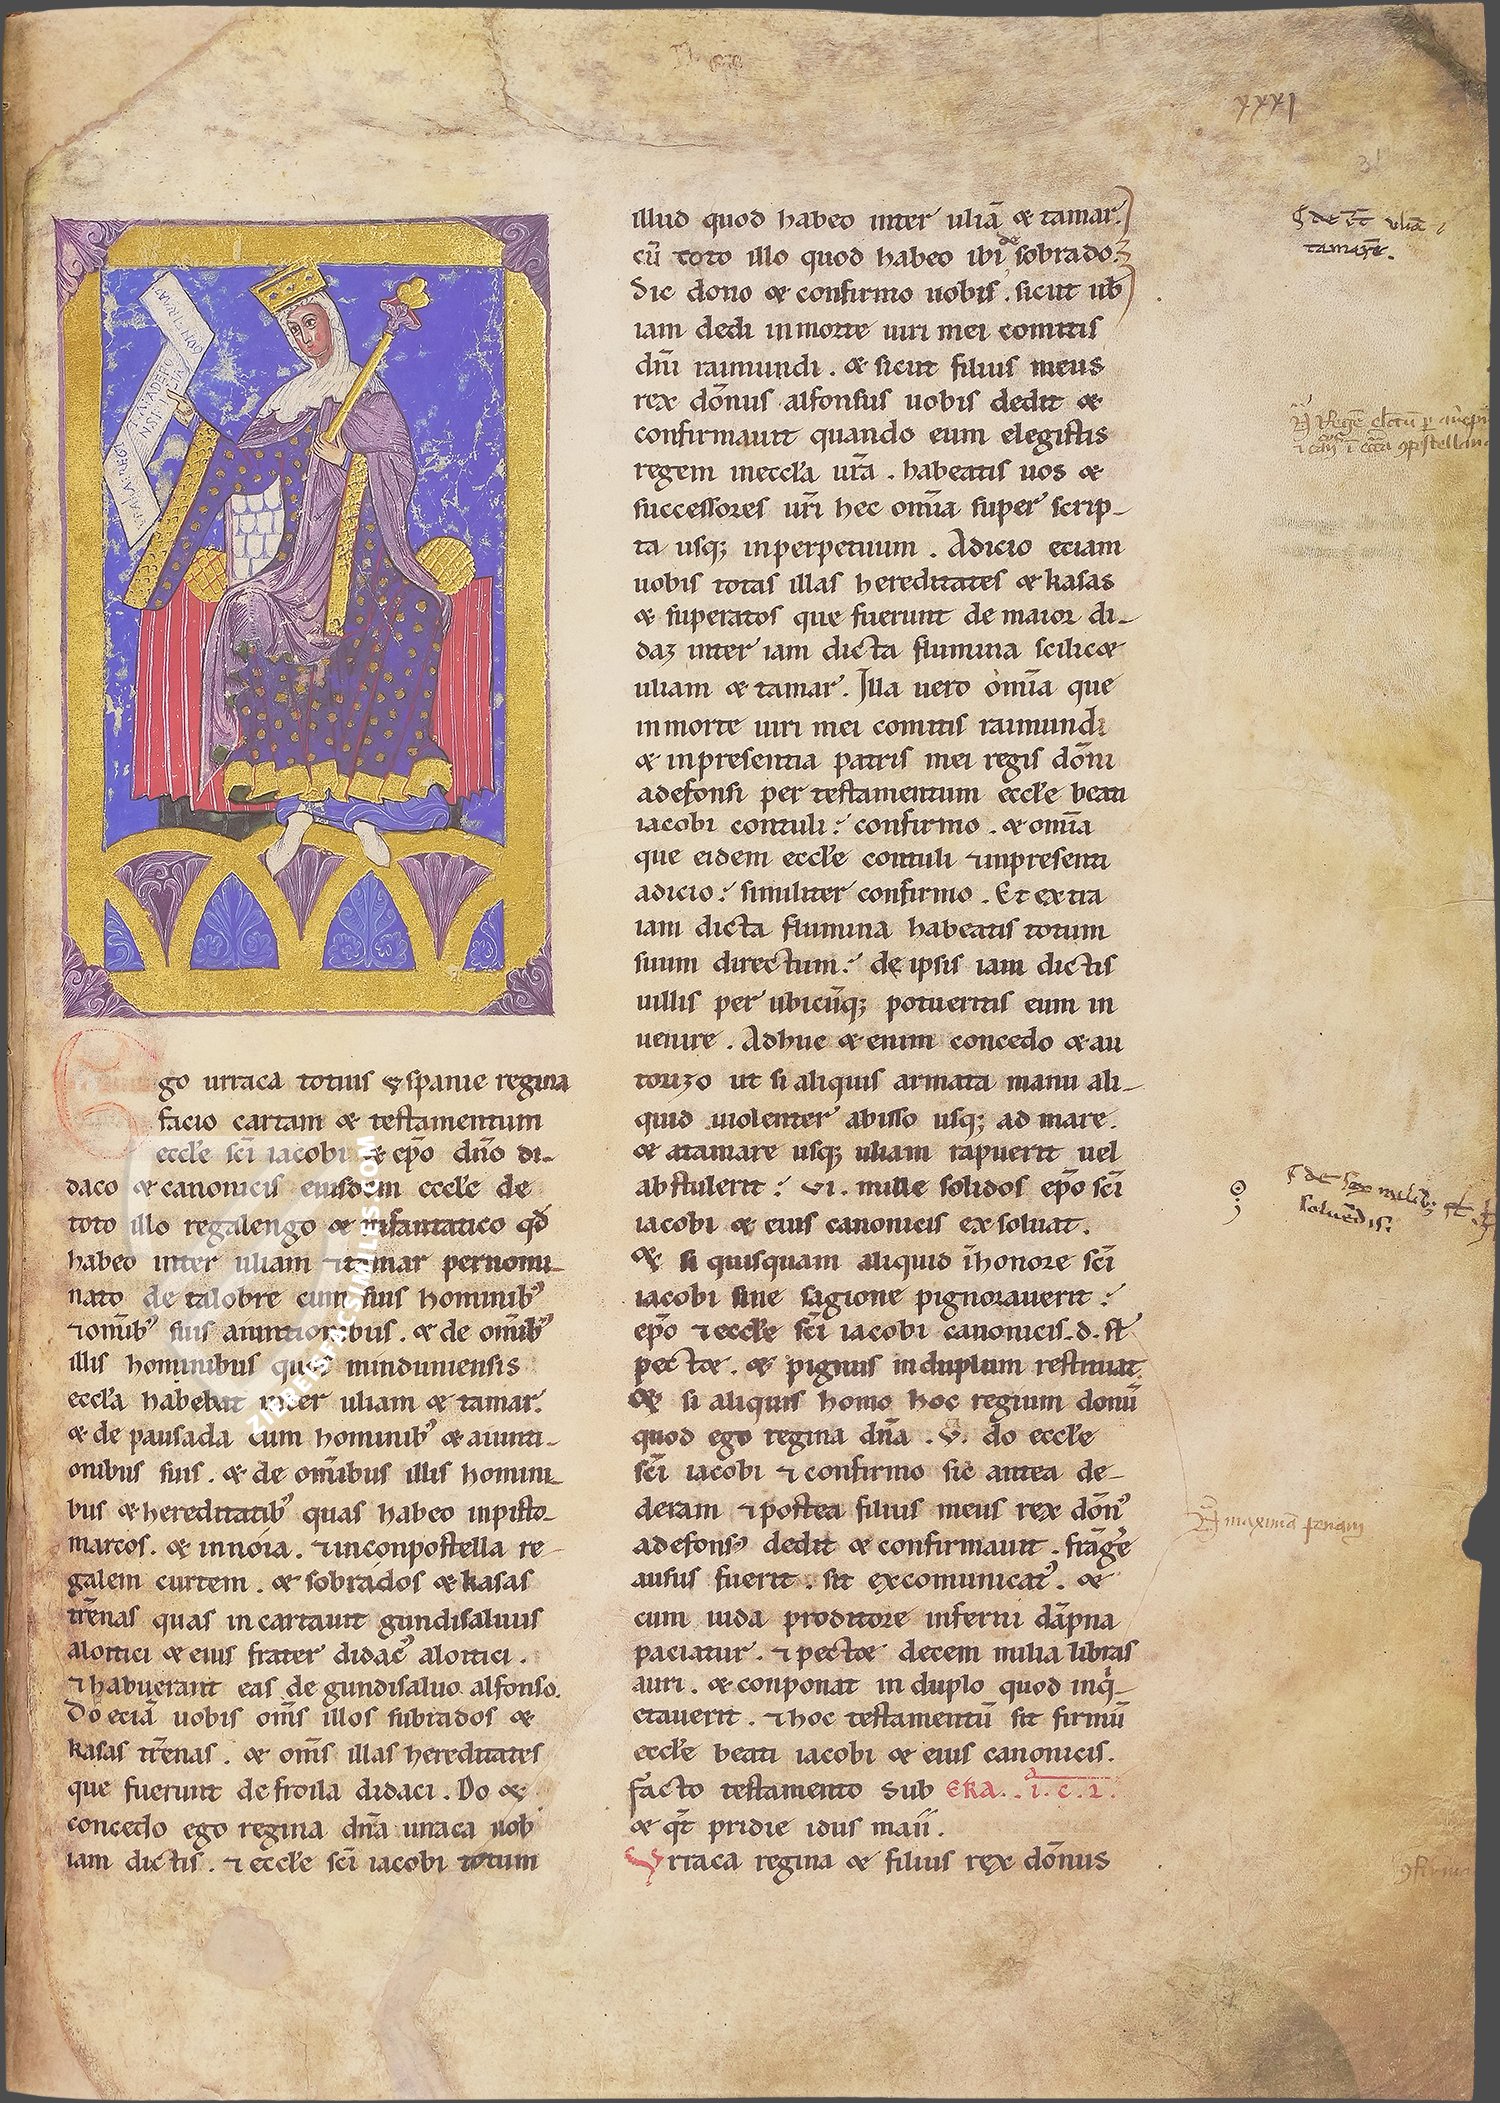 XXXI
31
go urraca totius yspanie regina
facio cartam & testamentum
eccl'e sc̄i iacobi & ep̄o dn̄o di-
daco & canonicis eiusdem eccl'e de
toto illo regalengo & infantatico qd̄
habeo inter uliam ⁊ tamar pernomi-
nato de talobre cum suis hominib;
⁊ om̄ib; suis aiuntionibus. & de om̄ib;
illis hominibus quos minduniensis
eccl'a habebat inter uliam & tamar.
& de pausada cum hominib; & aiunti-
onibus suis. & de om̄ibus illis homini-
bus & hereditatib; quas habeo inpisto-
marcos. & innoia. ⁊ inconpostella re-
galem curtem. & sobrados & kasas
tr̄enas quas incartauit gundisaluus
aloitici & eius frater didac' aloitici.
⁊ habuerant eas de gundisaluo alfonso.
Do eciā uobis om̄s illos subrados &
kasas tr̄enas. & om̄s illas hereditates
que fuerunt de froila didaci. Do &
concedo ego regina dn̄a urraca uob'
iam dictis. ⁊ eccl'e sc̄i iacobi totum
illud quod habeo inter uliā & tamar.
cū toto illo quod habeo ibi de sobrado.
Sic dono & confirmo uobis. sicut ub'
iam dedi inmorte uiri mei comitis
dn̄i raimundi. & sicut filius meus
rex dōnus alfonsus uobis dedit &
confirmauit quando eum elegistis
regem ineccl'a ur̄a. habeatis uos &
successores ur̄i hec om̄ia super scrip-
ta usq; inperpetuum. Adicio etiam
uobis totas illas hereditates & kasas
& superatos que fuerunt de maior di-
daz inter iam dicta flumina scilic&
uliam & tamar. Illa uero om̄ia que
inmorte uiri mei comitis raimundi
& inpresentia patris mei regis dōni
adefonsi per testamentum eccl'e beati
iacobi contuli: confirmo. & om̄ia
que eidem eccl'e contuli ⁊ inpresenti
adicio: similiter confirmo. Et extra
iam dicta flumina habeatis totum
suum directum: de ipsis iam dictis
uillis per ubicūq; potueritis eum in
uenire. Adhuc & enim concedo & au
torizo ut si aliquis armata manu ali-
quid uiolenter abisso usq; ad mare.
& atamare usq; uliam rapuerit uel
abstulerit: vi. mille solidos ep̄o sc̄i
iacobi & eius canonicis exsoluat.
& si quisquam aliquid īhonore sc̄i
iacobi sine sagione pignorauerit:
ep̄o ⁊ eccl'e sc̄i iacobi canonicis .d. sł
pect&. & pignus induplum restituat.
& si aliquis homo hoc regium donū
quod ego regina dn̄a .V. do eccl'e
sc̄i iacobi ⁊ confirmo sic antea de-
deram ⁊ postea filius meus rex dōn'
adefons' dedit & confirmauit. frāg'e
ausus fuerit. sit excomunicat'. &
cum iuda proditore inferni dāpna
paciatur. ⁊ pect& decem milia libras
auri. & conponat induplo quod inq'-
etauerit. ⁊ hoc testamentū sit firmū
eccl'e beati iacobi & eius canonicis.
facto testamento sub ERA. .ī.c.l.
& qr̄t pridie idus maii.
Vrraca regina & filius rex dōnus
tamarē.
soluēdis.
maximā penam
ZIEREIS FACSIMILES.COM